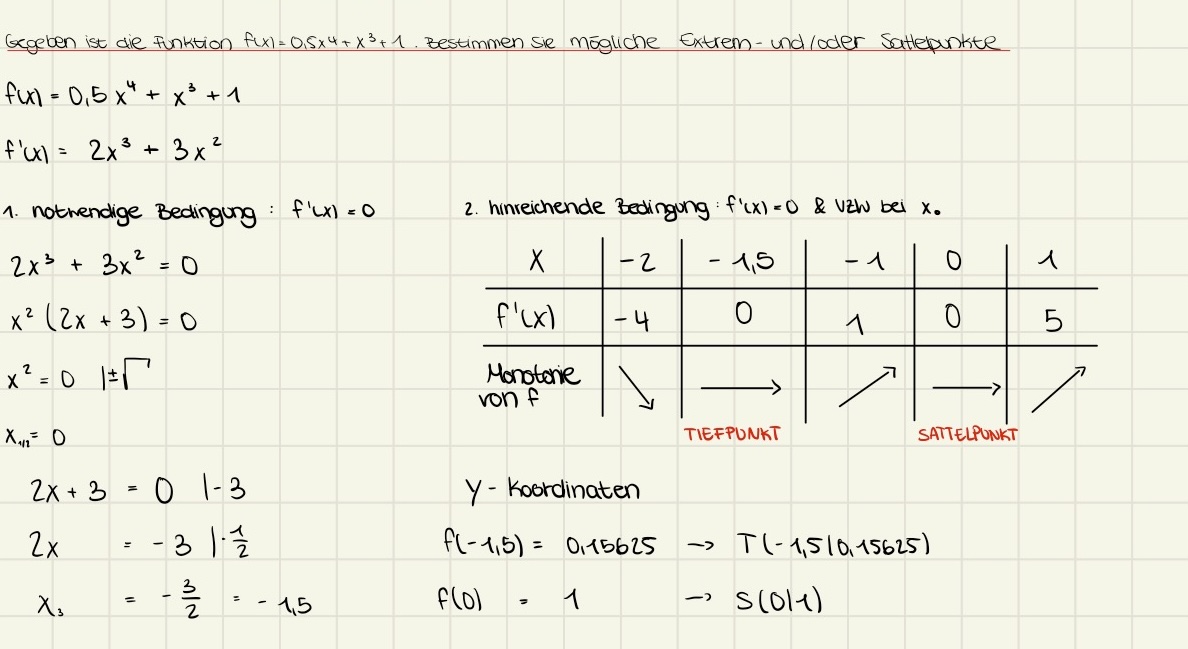 Gegeben ist die Funktion f(x) = 0,5x4 + x3 + 1. Bestimmen Sie mögliche Extrem- und/oder Sattelpunkte
f(x) = 0,5 x⁴ + x³ + 1
f'(x) = 2x³ + 3x²
1. notwendige Bedingung : f'(x) = 0
2x³ + 3x² = 0
x² (2x + 3) = 0
x² = 0 |±√
x₁/₂ = 0
2x + 3 = 0 |-3
2x = -3 |·1/2
x₃ = -3/2 = -1,5
2. hinreichende Bedingung : f'(x) = 0 & VZW bei x₀
x | -2 | -1,5 | -1 | 0 | 1
f'(x) | -4 | 0 | 1 | 0 | 5
Monotonie von f | ↘ | → | ↗ | → | ↗
TIEFPUNKT SATTELPUNKT
y-Koordinaten
f(-1,5) = 0,15625 → T(-1,5|0,15625)
f(0) = 1 → S(0|1)